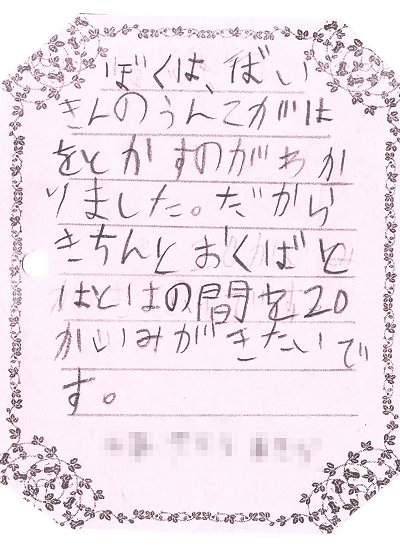 ぼくは、ばい
きんのうんこがは
をとかすのがわか
りました。だから
きちんとおくばと
はとはの間を20
かいみがきたいで
す。